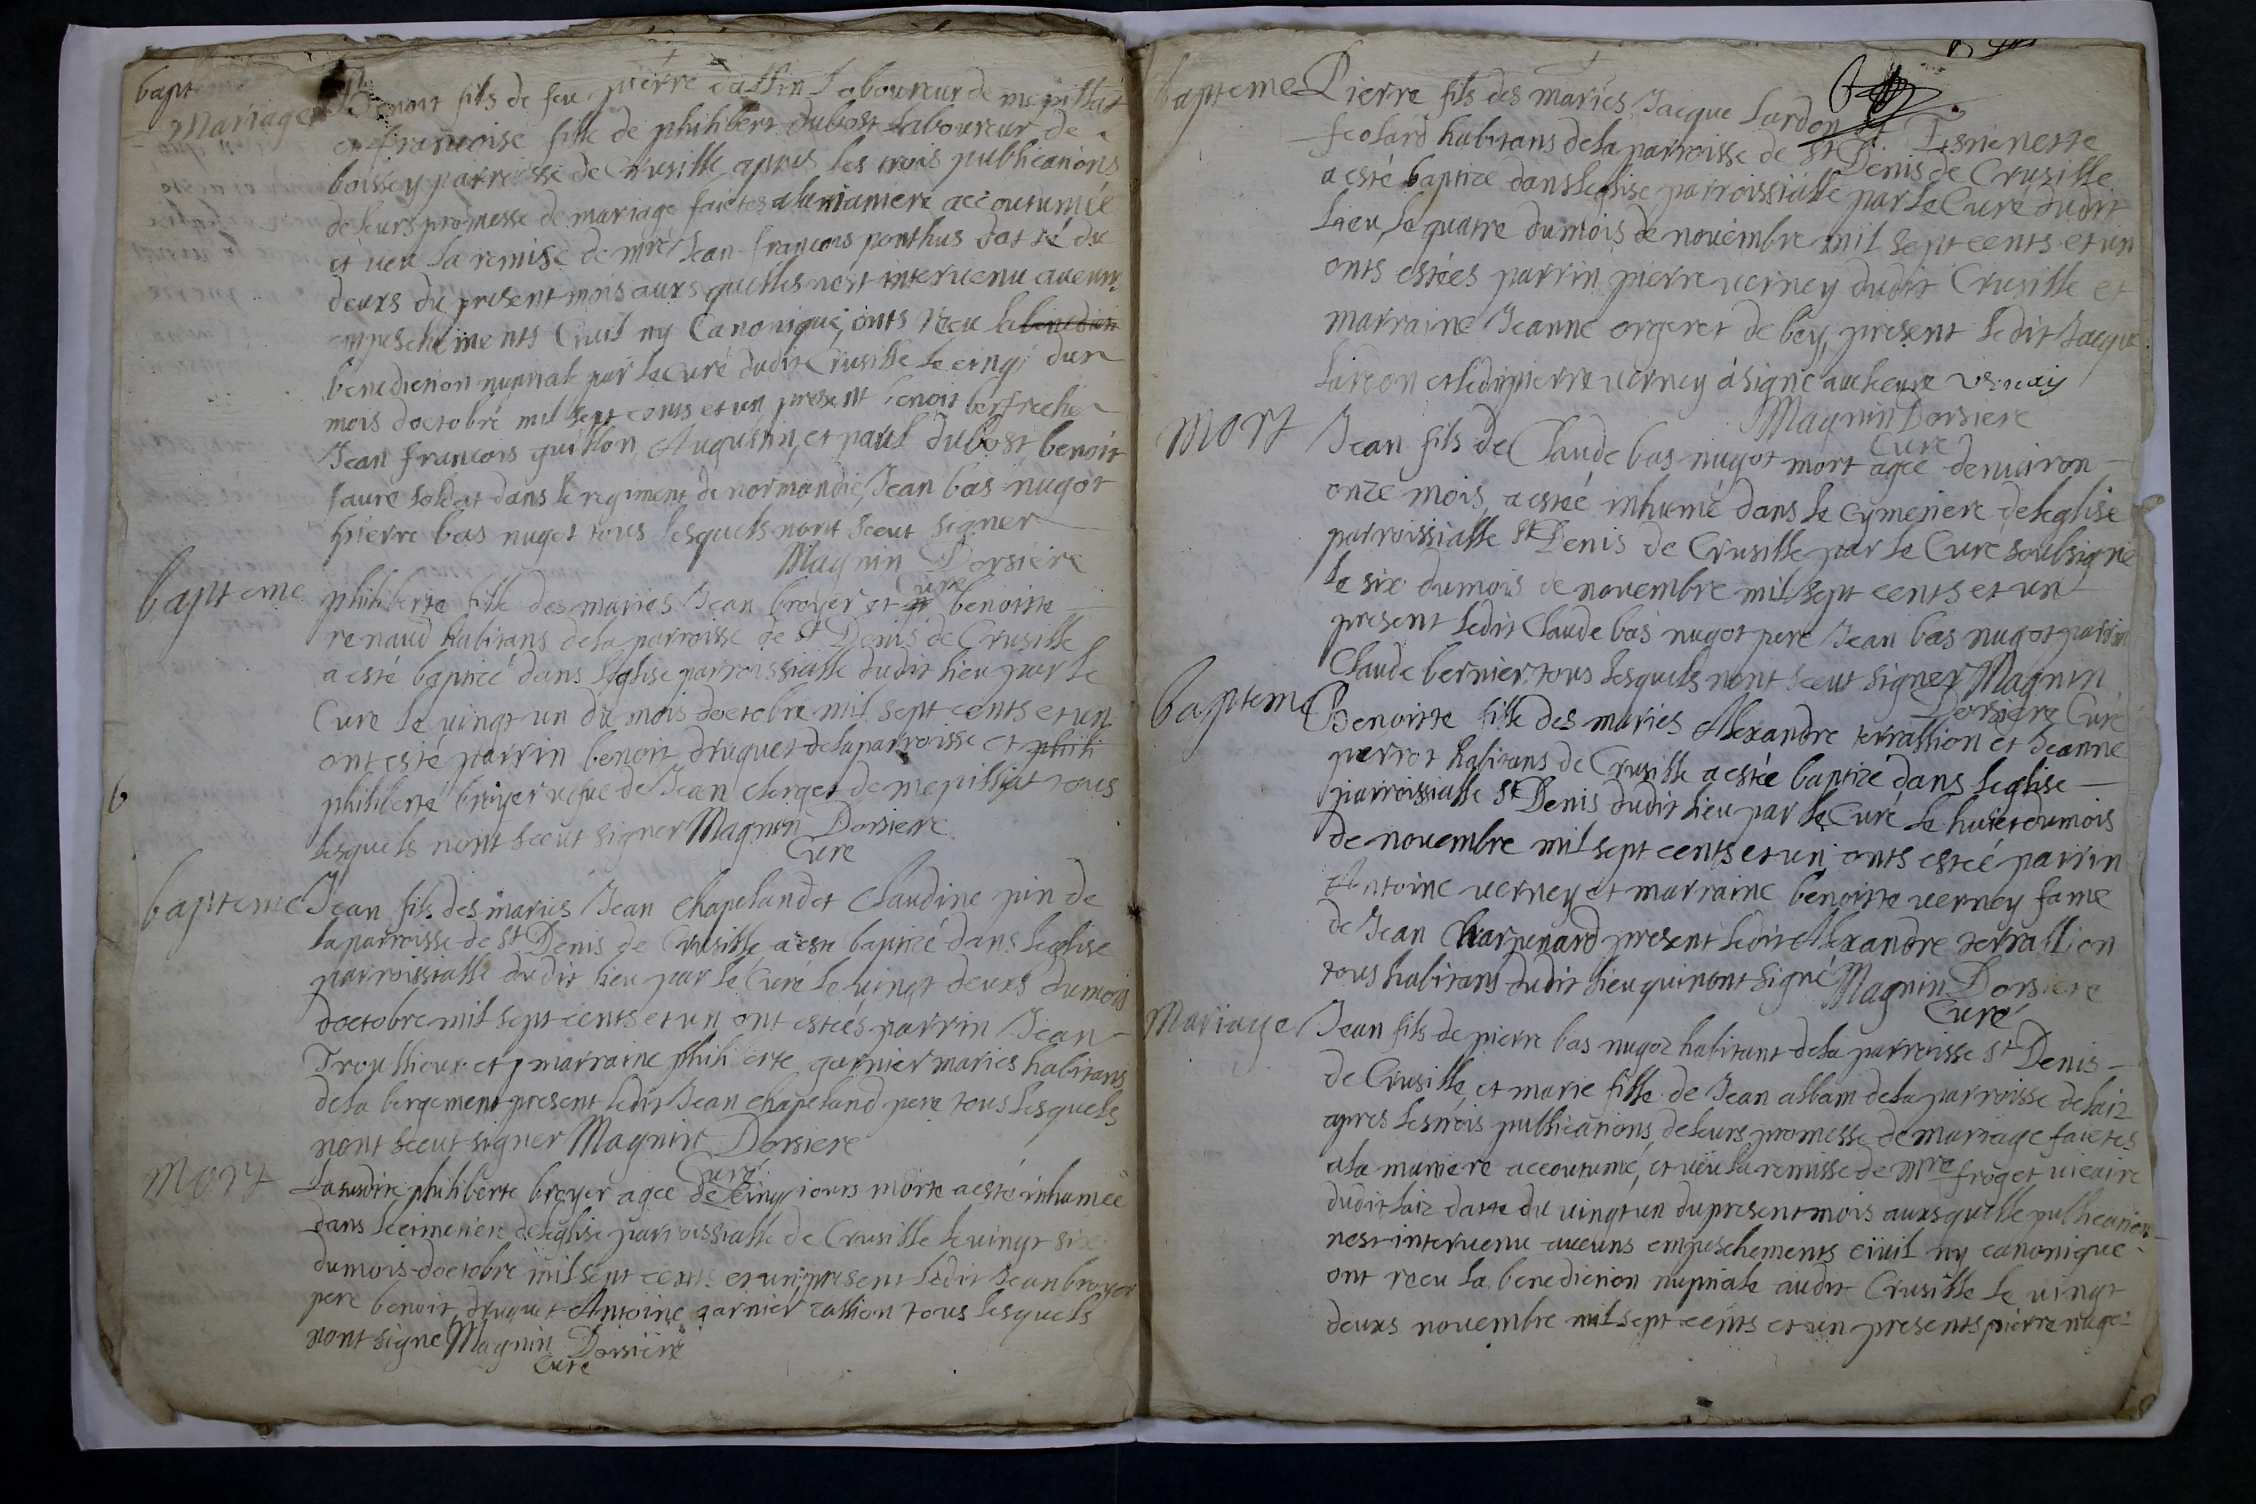 bapt
Mariage
Benoit fils de feu pierre daffin Laboureur de mepillat
et francoise fille de philibert dubost laboureur de
boissey parroisse de Crusille apres les trois publications
de leurs promesse de mariage faictes a la maniere accoutumée
et veu la remise de mre Jean francois ponthus datté du
deuxs du present mois auxs quelles nest intervenu aucuns
empeschements Civil ny Canonique, onts reçu la benedion
benediction nuptial par le Curé dudit Crusille le cinq du
mois doctobre mil sept cents et un present benoit berfreche
Jean francois guillon Augustin, et paul dubost benoit
faure soldat dans le regiment de normandie, Jean bas nugot
pierre bas nugot tous lesquels nont sceut signer
Magnin Dorsiere
Curé
bapteme
philiberte fille des maries Jean broyer et benoitte
renaud habitans de la parroisse de St Denis de Crusille
a esté baptizé dans leglise parroissialle dudit lieu par le
Cure le vingt un du mois doctobre mil sept cents et un
ont esté parrin benoit druguet de la parroisse et phili
philiberte broyer vefue de Jean clerget de mepilliat tous
lesquels nont sceut signer Magnin Dorsiere
Cure
6
bapteme
Jean fils des maries Jean chapeland et Claudine pin de
la parroisse de St Denis de Crusille a esté baptizé dans leglise
parroissialle dudit lieu par le Curé le vingt deuxs du mois
doctobre mil sept cents et un ont esteés parrin Jean
Troullieur et marraine philiberte garnier maries habitans
de la bergement present ledit Jean chapeland pere tous lesquels
nont sceut signer Magnin Dorsiere
Curé
Mort
La susdite philiberte broyer agee de cinq iours morte a esté inhumeé
dans le cimetiere de leglise parroissialle de Crusille le vingt six
du mois doctobre mil sept cents et un present ledit Jean broyer
pere benoit druguet Antoine garnier tous lesquels
nont signe Magnin Dorsiere
Cure
bapteme
Pierre fils des maries Jacque Lardon et Esnenette
feolard habitans de la parroisse de St Denis de Crusille
a esté baptize dans leglise parroissialle par le Curé dudit
Lieu, le quatre du mois de novembre mil sept cents et un
onts esteés parrin pierre verney dudit Crusille et
marraine Jeanne orgeret de bey, present ledit Jacque
Lardon et ledit pierre verney à signé auec le cure vernay
Magnin Dorsiere
Curé
Mort
Jean fils de Claude bas nugot mort agee denuiron
onze mois, a esteé inhumé dans le cymetiere de leglise
parroissialle St Denis de Crusille par le Cure soubsigné
le six du mois de novembre mil sept cents et un
present ledit Claude bas nugot pere Jean bas nugot parrin
Claude bernier, tous lesquels nont sceut signer Magnin
Dorsiere Curé
bapteme
Benoitte fille des maries Alexandre terrallion et Jeanne
perrot habitans de Crusille a estée baptizé dans leglise
parroissialle St Denis dudit lieu par le Curé le huict du mois
de novembre mil sept cents et un onts esteé parrin
Antoine verney et marraine benoitte verney fame
de Jean Charpenard present ledit Alexandre terrallion
tous habitans dudit lieu qui nont signé Magnin Dorsiere
Curé
Mariage
Jean fils de pierre bas nugot habitant de la parroisse St Denis
de Crusille, et marie fille de Jean allbam de la parroisse de laiz
apres les trois publications de leurs promesse de mariage faictes
a la maniere accoutumé, et veu la remisse de Mre froget vicaire
dudit laiz datte du vingt un du present mois auxsquelle publication
nest intervenu aucuns empeschements civil ny canonique
ont receu la benediction nuptiale audit Crusille le vingt
deuxs novembre mil sept cents et un presents pierre nugot